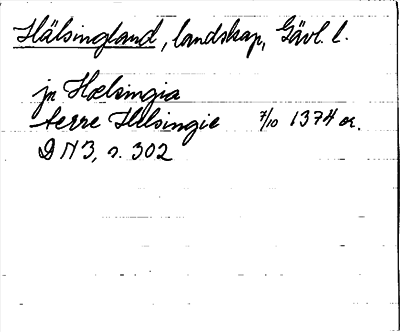 Hälsingland, landskap, Gävl. l.
jn Hælsingia
terre Helsingie 7/10 1374 or.
DN3, s. 302